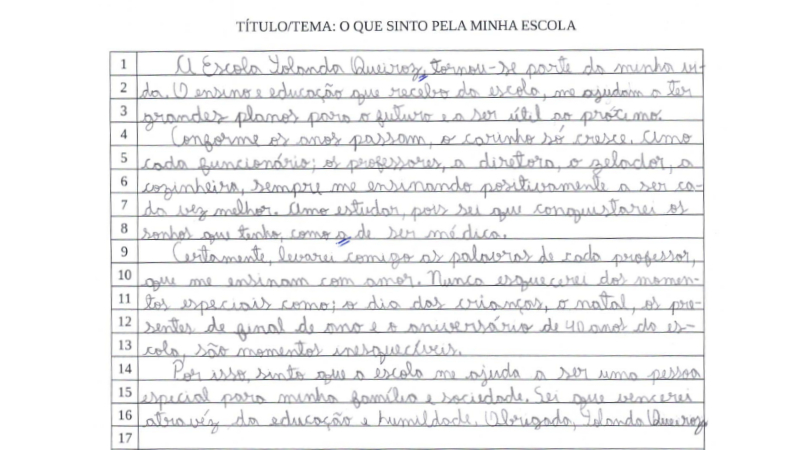 TÍTULO/TEMA: O QUE SINTO PELA MINHA ESCOLA
1 A Escola Yolanda Queiroz, tornou-se parte da minha vi-
2 da. O ensino e educação que recebo da escola, me ajudam a ter
3 grandes planos para o futuro e a ser útil ao próximo.
4 Conforme os anos passam, o carinho só cresce. Amo
5 cada funcionário; os professores, a diretora, o zelador, a
6 cozinheira, sempre me ensinando positivamente a ser ca-
7 da vez melhor. Amo estudar, pois sei que conquistarei os
8 sonhos que tenho, como o de ser médica.
9 Certamente, levarei comigo as palavras de cada professor,
10 que me ensinam com amor. Nunca esquecerei dos momen-
11 tos especiais como; o dia das crianças, o natal, os pre-
12 sentes de final de ano e o aniversário de 40 anos da es-
13 cola, são momentos inesquecíveis.
14 Por isso, sinto que a escola me ajuda a ser uma pessoa
15 especial para minha família e sociedade. Sei que vencerei
16 atravéz da educação e humildade. Obrigada, Yolanda Queiroz
17